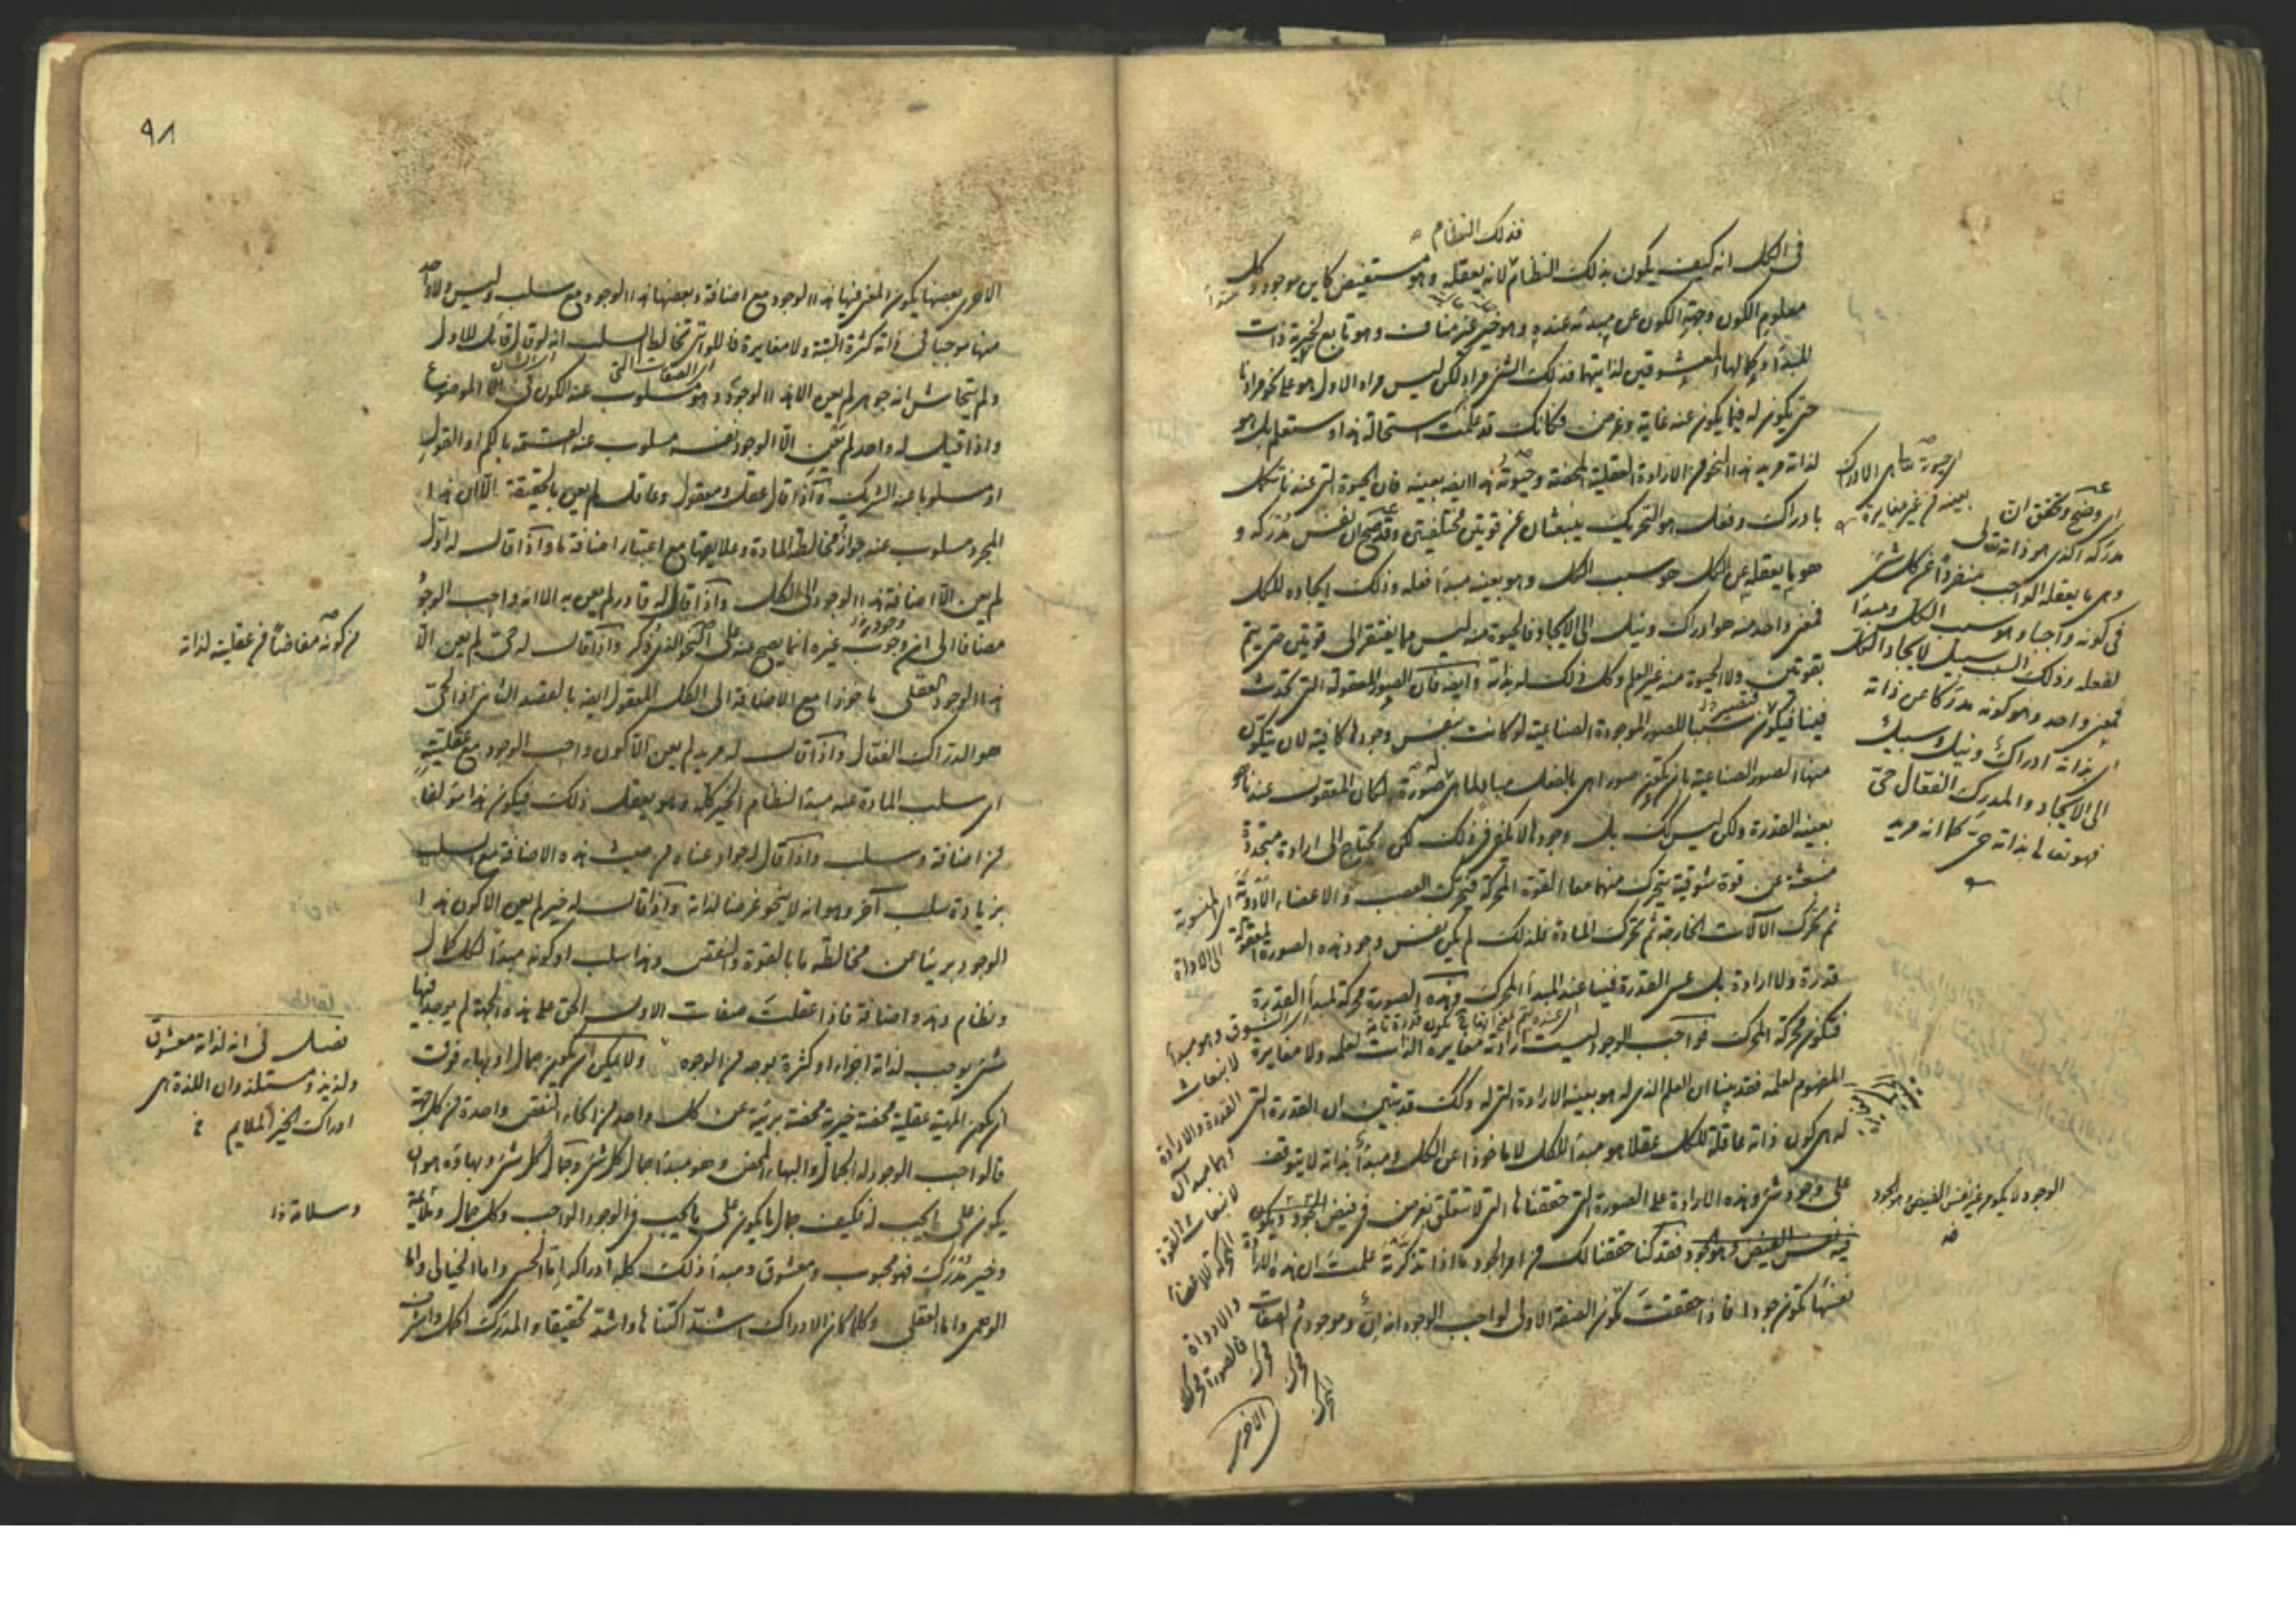 فذلك النظام
في الكل انه كيف يكون بذلك النظام لانه يعقله وهو مستفيض كاين موجود وكل
معلوم الكون وجهة الكون عن مبدئه عند مبدئه وهو خير غير مناف وهو تابع لخيرية ذات
المبدأ وكمالها المعشوقين لذاتيهما فذلك الشئ مراد لكن ليس مراد الاول هو على نحو مرادنا
حتى يكون له فيما يكون عنه غاية وغرض فكأنك قد علمت استحالة هذا وستعلم بل هو
لذاته مريد هذا النحو من الارادة العقلية المحضة وحيوته هذا ايضا بعينه فان الحيوة التي عندنا تكمل
بادراك وفعل هو التحريك ينبعثان عن قوتين مختلفتين وقد صح ان نفس مدركه و
هو ما يعقله عن الكل هو سبب الكل وهو بعينه مبدأ فعله وذلك ايجاده للكل
فمعنى واحد منه هو ادراك وسبيل الى الايجاد فالحيوة منه ليس مما يفتقر الى قوتين حتى يتم
بقوتين ولا الحيوة منه غير العلم وكل ذلك له بذاته وايضا فان الصور المعقولة التي تحدث
فينا فيكون سببا للصور الموجودة الصناعية لو كانت بنفس وجودها كافية لان يتكون
منها الصور الصناعية بان تكون صورا هي بالفعل مباد لما هي له صورة لكان المعقول عندنا هو
بعينه القدرة ولكن ليس كك بل وجودها لا يكفي في ذلك لكن يحتاج الى ارادة متجددة
منبعثة عن قوة شوقية يتحرك منهما معا القوة المحركة فتحرك العصب والاعضاء الادوية
ثم تحرك الآلات الخارجة ثم تحرك المادة فلذلك لم يكن نفس وجود هذه الصورة المعقولة
قدرة ولا ارادة بل عسى القدرة فينا عند المبدأ المحرك وهذه الصورة محركة لمبدأ القدرة
فتكون محركة المحرك فواجب الوجود ليست ارادته مغايرة الذات لعلمه ولا مغايرة
المفهوم لعلمه فقد بينا ان العلم الذي له هو بعينه الارادة التي له وكك قد تبين ان القدرة التي
له هي كون ذاته عاقلة للكل عقلا هو مبدأ للكل لا ماخوذا عن الكل ومبدأ بذاته لا يتوقف
على وجود شئ وهذه الارادة على الصورة التي حققناها التي لا تتعلق بغرض في فيض الوجود
فيه نفس الفيض وهو الجود فقد كنا حققنا لك من امر الجود ما اذا تذكرته علمت ان هذه الارادة
نفسها تكون جودا فاذا حققت تكون الصفة الاولى لواجب الوجود انه ان وموجود ثم الصفات
الاخرى
اي حيوته تعالى هي الادراك
بعينه من غير مغايرة
اي وضح وتحقق ان
مدركه الذي هو ذاته تعالى
وهي ما يعقله الواجب منفردا عن كل شئ
في كونه واجبا وهو سبب الكل ومبدأ
لفعله وذلك السبب سبيل لايجاد الكل
فمعنى واحد وهو كونه مدركا عن ذاته
اي بذاته ادراك وسبيل
الى الايجاد والمدرك الفعال حي
فهو تعالى بذاته حي كما انه مريد
اي المنسوبة
الى الاداة
الوجود لا يكون غير نفس الفيض وهو الجود
٩٨
الاخرى بعضها يكون المعنى فيها هذا الوجود مع اضافة وبعضها هذا الوجود مع سلب وليس ولا واحد
منها موجبا في ذاته كثرة البتة ولا مغايرة فاللواتي تخالط السلب انه لو قال قائل للاول
ولم يتحاش انه جوهر لم يعن الا هذا الوجود وهو مسلوب عنه الكون في الموضوع
واذا قيل له واحد لم يعن الا الوجود نفسه مسلوب عنه القسمة بالكم او القول
او مسلوبا عنه الشريك واذا قال عقل ومعقول وعاقل لم يعن بالحقيقة الا ان هذا
المجرد مسلوب عنه جواز مخالطة المادة وعلايقها مع اعتبار اضافة ما واذا قال له اول
لم يعن الا اضافة هذا الوجود الى الكل واذا قال له قادر لم يعن به الا انه واجب الوجود
مضافا الى ان وجود غيره انما يصح عنه على النحو الذي ذكر واذا قال له حي لم يعن الا
هذا الوجود العقلي ماخوذا مع الاضافة الى الكل المعقول ايضا بالقصد الثاني اذ الحي
هو الدراك الفعال واذا قال له مريد لم يعن الا كون واجب الوجود مع عقليته
اي سلب المادة عنه مبدأ لنظام الخير كله وهو يعقل ذلك فيكون هذا مؤلفا
من اضافة وسلب واذا قال له جواد عناه من حيث هذه الاضافة مع السلب
بزيادة سلب آخر وهو انه لا ينحو غرضا لذاته واذا قال له خير لم يعن الا كون هذا
الوجود بريئا عن مخالطة ما بالقوة والنقص وهذا سلب او كونه مبدأ لكل كمال
ونظام وهذه اضافة فاذا عقلت صفات الاول الحق على هذه الجهة لم يوجد فيها
شئ يوجب لذاته اجزاء او كثرة بوجه من الوجوه ولا يمكن ان يكون جمال او بهاء فوق
ان يكون الماهية عقلية محضة خيرية محضة برية عن كل واحد من انحاء النقص واحدة من كل جهة
فالواجب الوجود له الجمال والبهاء المحض وهو مبدأ جمال كل شئ وكمال كل شئ وبهاؤه هو ان
يكون على ما يجب له فكيف جمال ما يكون على ما يجب في الوجود الواجب وكل جمال وملائمة
وخير مدرك فهو محبوب ومعشوق ومبدأ ذلك كله ادراكه اما الحسي واما الخيالي واما
الوهمي واما العقلي وكلما كان الادراك اشد اكتناها واشد تحقيقا والمدرك اكمل واشرف
من كونه مفاضا من عقليته لذاته
فصل في انه لذاته معشوق
ولذيذ ومستلذ وان اللذة هي
ادراك الخير الملايم